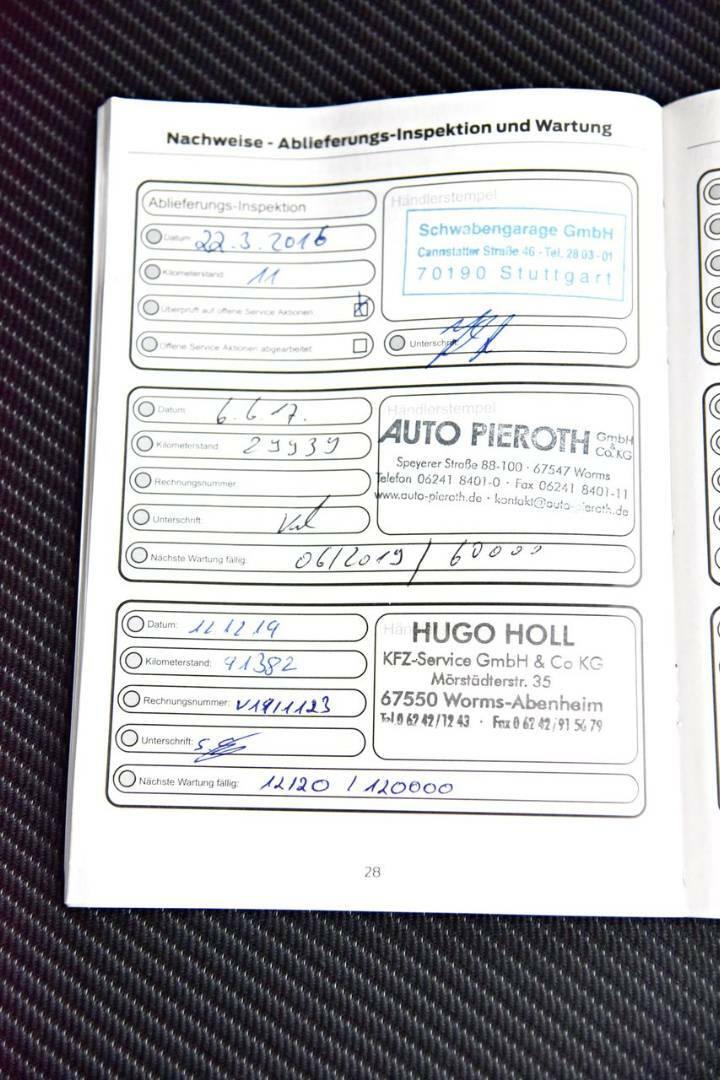 Nachweise - Ablieferungs-Inspektion und Wartung
Ablieferungs-Inspektion
Datum: 22.3.2016
Kilometerstand: 11
Überprüft auf offene Service Aktionen
Offene Service Aktionen abgearbeitet
Händlerstempel
Schwabengarage GmbH
Cannstatter Straße 46 - Tel. 28 03-01
70190 Stuttgart
Unterschrift
Datum: 6.6.17.
Kilometerstand: 29939
Rechnungsnummer:
Unterschrift:
Nächste Wartung fällig: 06/2019 / 60000
Händlerstempel
AUTO PIEROTH GmbH & Co. KG
Speyerer Straße 88-100 · 67547 Worms
Telefon 06241 8401-0 · Fax 06241 8401-11
www.auto-pieroth.de · kontakt@auto-pieroth.de
Datum: 11.12.19
Kilometerstand: 91382
Rechnungsnummer: V19/1123
Unterschrift:
Nächste Wartung fällig: 12/20 / 120000
HUGO HOLL
KFZ-Service GmbH & Co KG
Mörstädterstr. 35
67550 Worms-Abenheim
Tel. 0 62 42 / 12 43 · Fax 0 62 42 / 91 56 79
28